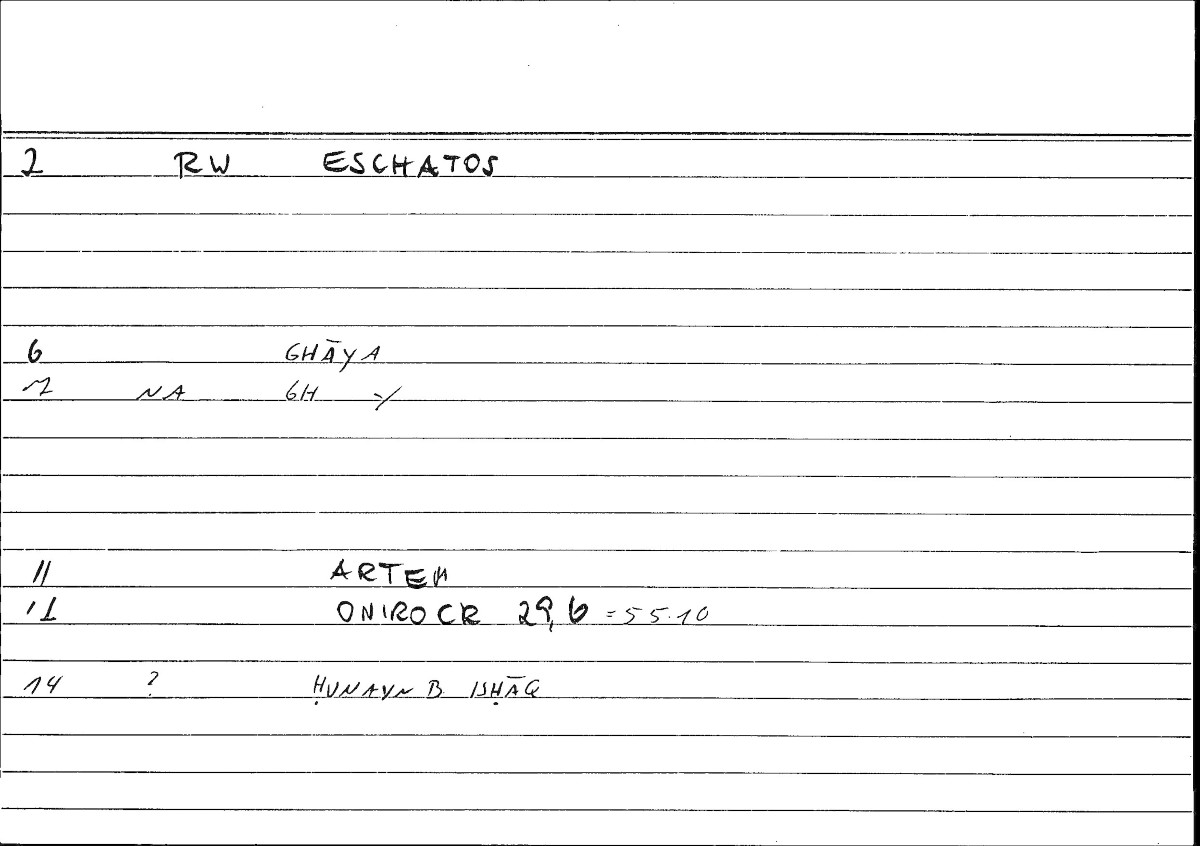 2 RW ESCHATOS
6 GHĀYA
7 NA GH -/
11 ARTEM
12 ONIROCR 29,6 =55.10
14 ? ḤUNAYN B ISḤĀQ